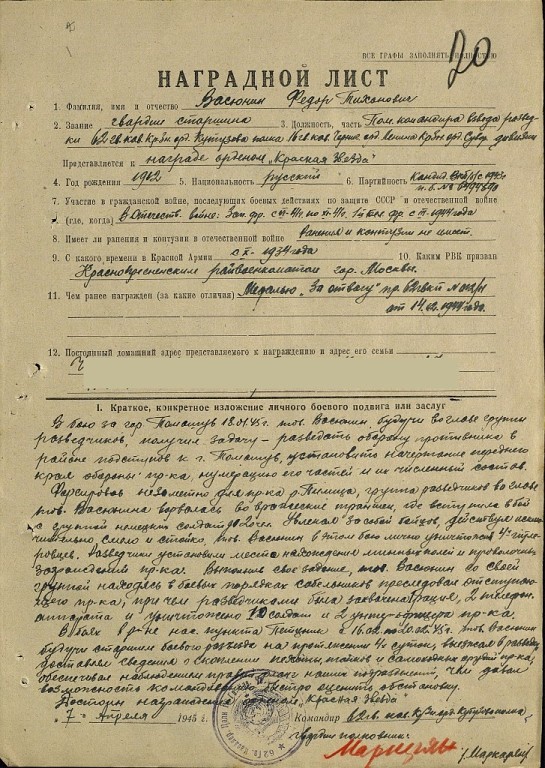 20
ВСЕ ГРАФЫ ЗАПОЛНЯТЬ ПОЛНОСТЬЮ
НАГРАДНОЙ ЛИСТ
1. Фамилия, имя и отчество Васюнин Федор Тихонович
2. Звание гвардии старшина 3. Должность, часть Пом. командира взвода развед-
ки 62 гв. кав. Кр.бн. орд. Кутузова полка 16 св. кав. Черниг. орд. Ленина Кр.бн. орд. Сувор. дивизии
Представляется к награде орденом „Красная Звезда"
4. Год рождения 1912 5. Национальность русский 6. Партийность Кандид. ВКП(б) с
7. Участие в гражданской войне, последующих боевых действиях по защите СССР и отечественной войне
(где, когда) В Отечеств. войне: Зап. фр. с по
8. Имеет ли ранения и контузии в отечественной войне ранений и контузии не имеет.
9. С какого времени в Красной Армии с X - 1934 года 10. Каким РВК призван
Краснопресненским райвоенкоматом гор. Москвы.
11. Чем ранее награжден (за какие отличия) Медалью „За отвагу" пр. 62 гвкп №
от 14.02.1944 года.
12. Постоянный домашний адрес представляемого к награждению и адрес его семьи
I. Краткое, конкретное изложение личного боевого подвига или заслуг
В бою за гор. Томашув 18.01.45 г. тов. Васюнин, будучи во главе группы
разведчиков, получил задачу – разведать оборону противника в
районе подступов к г. Томашув, установить начертание переднего
края обороны пр-ка, нумерацию его частей и их численный состав.
Форсировав незаметно для пр-ка р. Пилица, группа разведчиков во главе
тов. Васюнина ворвалась во вражеские траншеи, где вступила в бой
с группой немецких солдат Увлекая за собой бойцов, действуя исклю-
чительно смело и стойко, тов. Васюнин в этом бою лично уничтожил 4-х гитле-
ровцев. Разведчики установили места нахождения минных полей и проволочных
заграждений пр-ка. Выполнив свое задание, тов. Васюнин со своей
группой находясь в боевых порядках сабельников преследовал отступаю-
щего пр-ка, при чем разведчиками была захвачена рация, 2 телефон.
аппарата и уничтожено 10 солдат и 2 унтер-офицера пр-ка.
В боях в р-не нас. пункта с 16.02 по 20.02.45 г. тов. Васюнин
будучи старшим боевого разъезда на протяжении 4х суток, выезжал в разведку
доставлял сведения о скоплении пехоты, танков и самоходных орудий пр-ка,
обеспечивая наблюдением наших подразделений, чем давал
возможность командованию быстро оценить обстановку.
Достоин награждения орденом „Красная Звезда"
„7" Апреля 1945 г. Командир 62 гв. кав. Кр.бн. орд. Кутузова полка
гвардии полковник
/Маркарян/